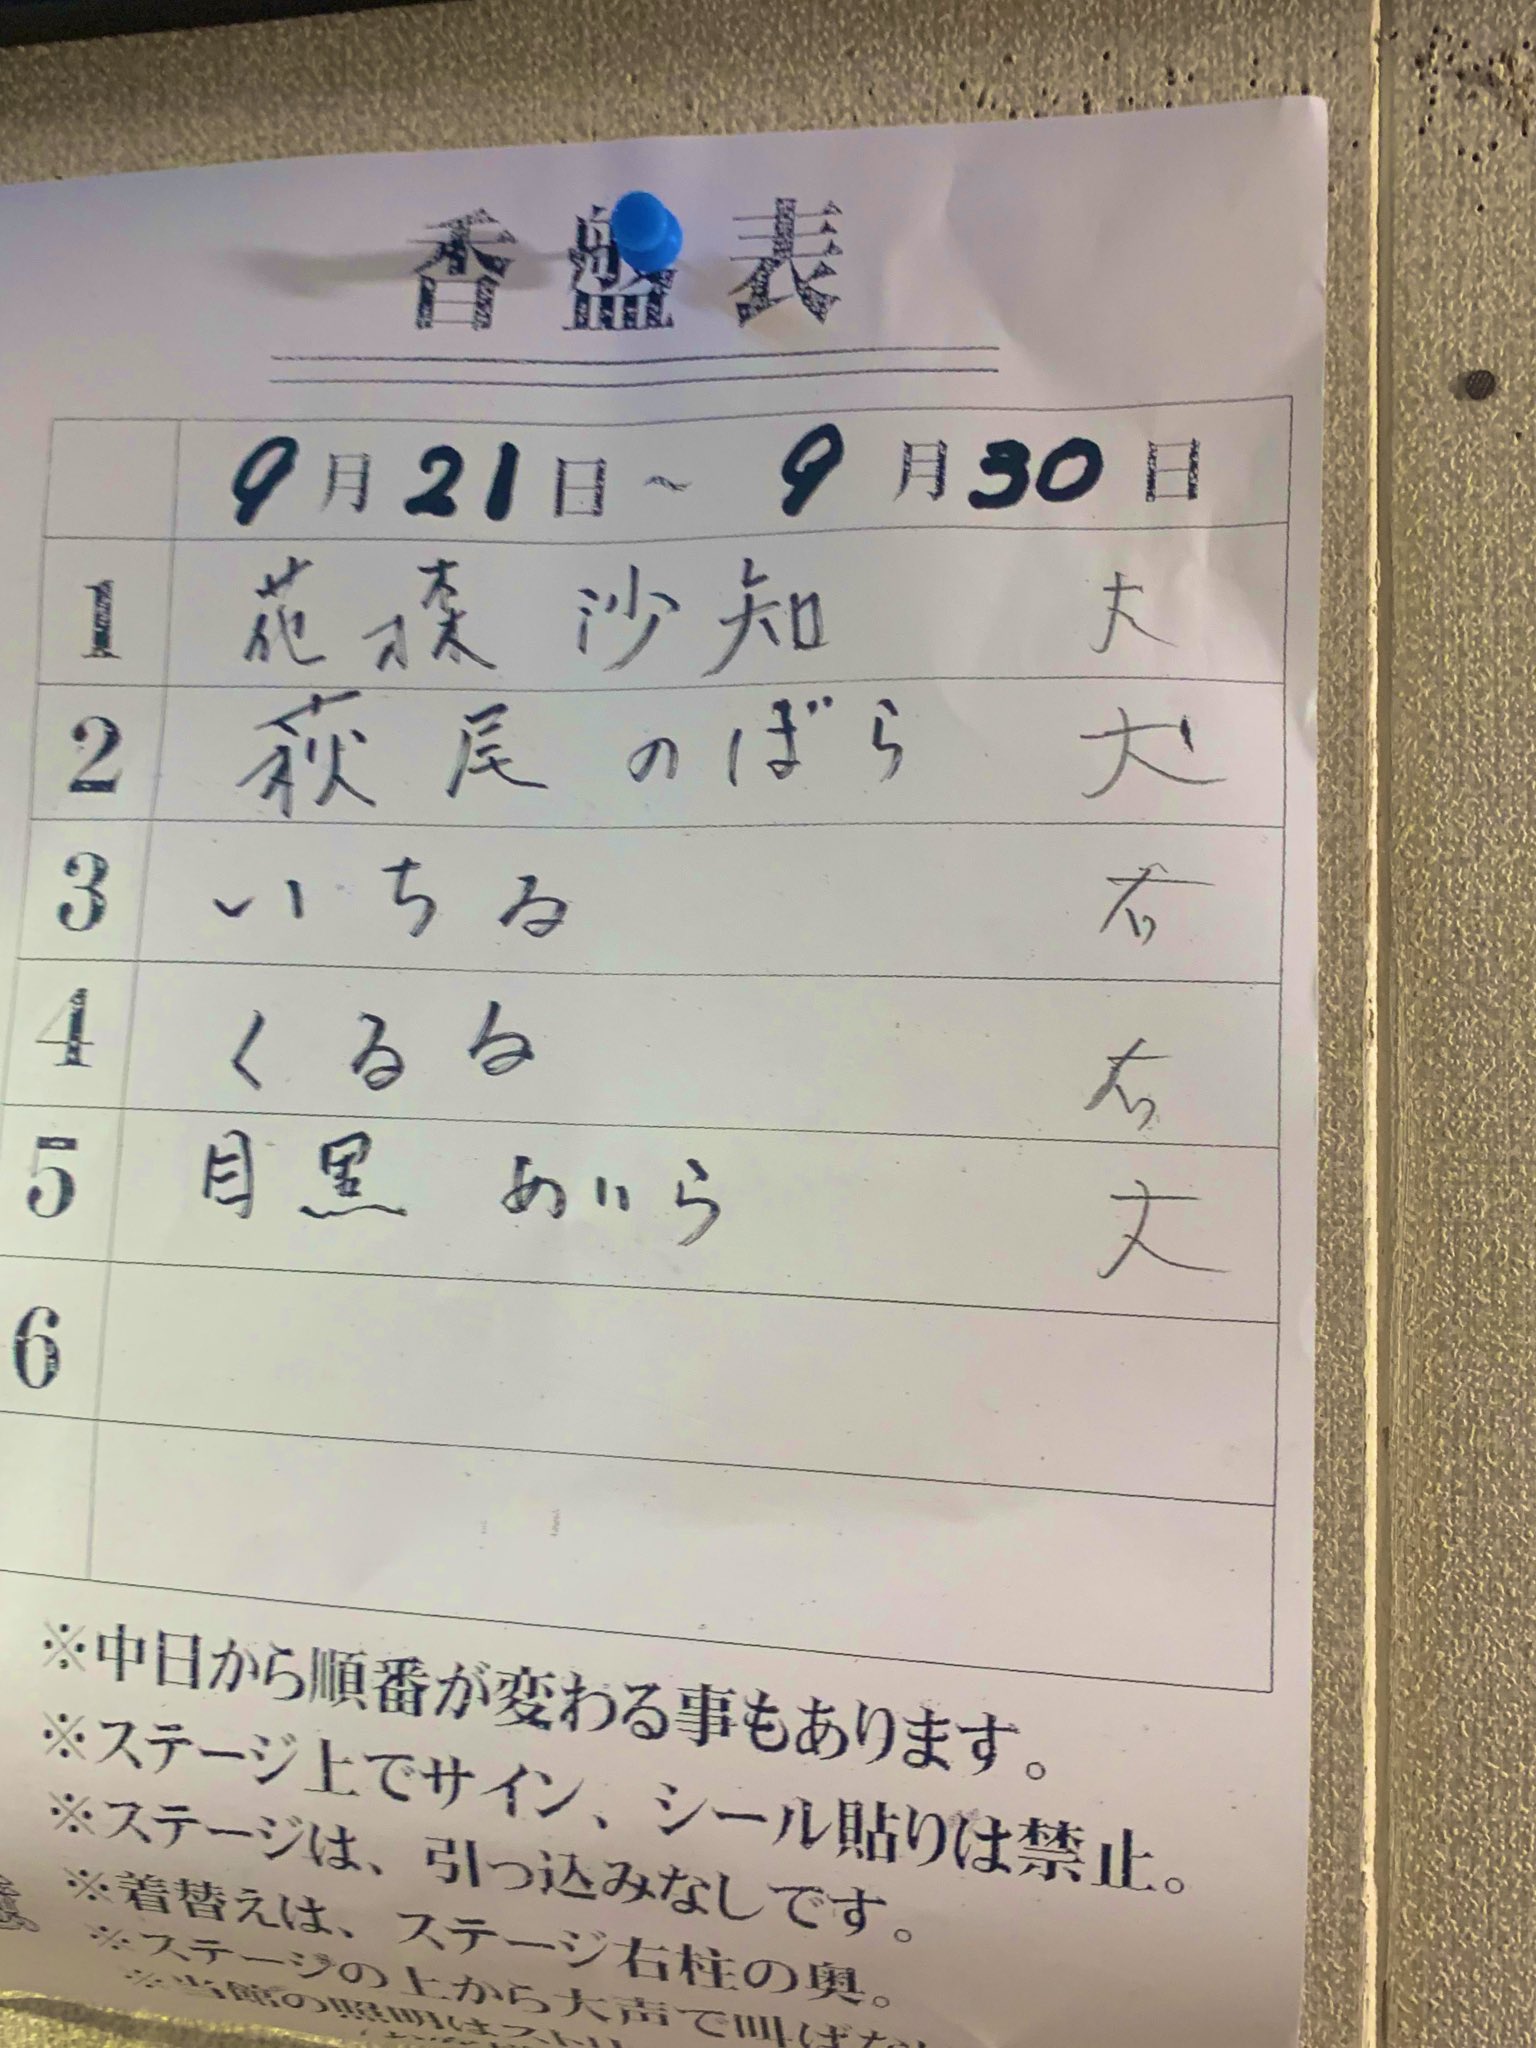 香盤表
9月21日～9月30日
1 花森沙知 大
2 萩尾のばら 大
3 いちる 右
4 くるる 右
5 目黒あいら 大
6
※中日から順番が変わる事もあります。
※ステージ上でサイン、シール貼りは禁止。
※ステージは、引っ込みなしです。
※着替えは、ステージ右柱の奥。
※ステージの上から大声で叫ばな
※当館の照明はスト